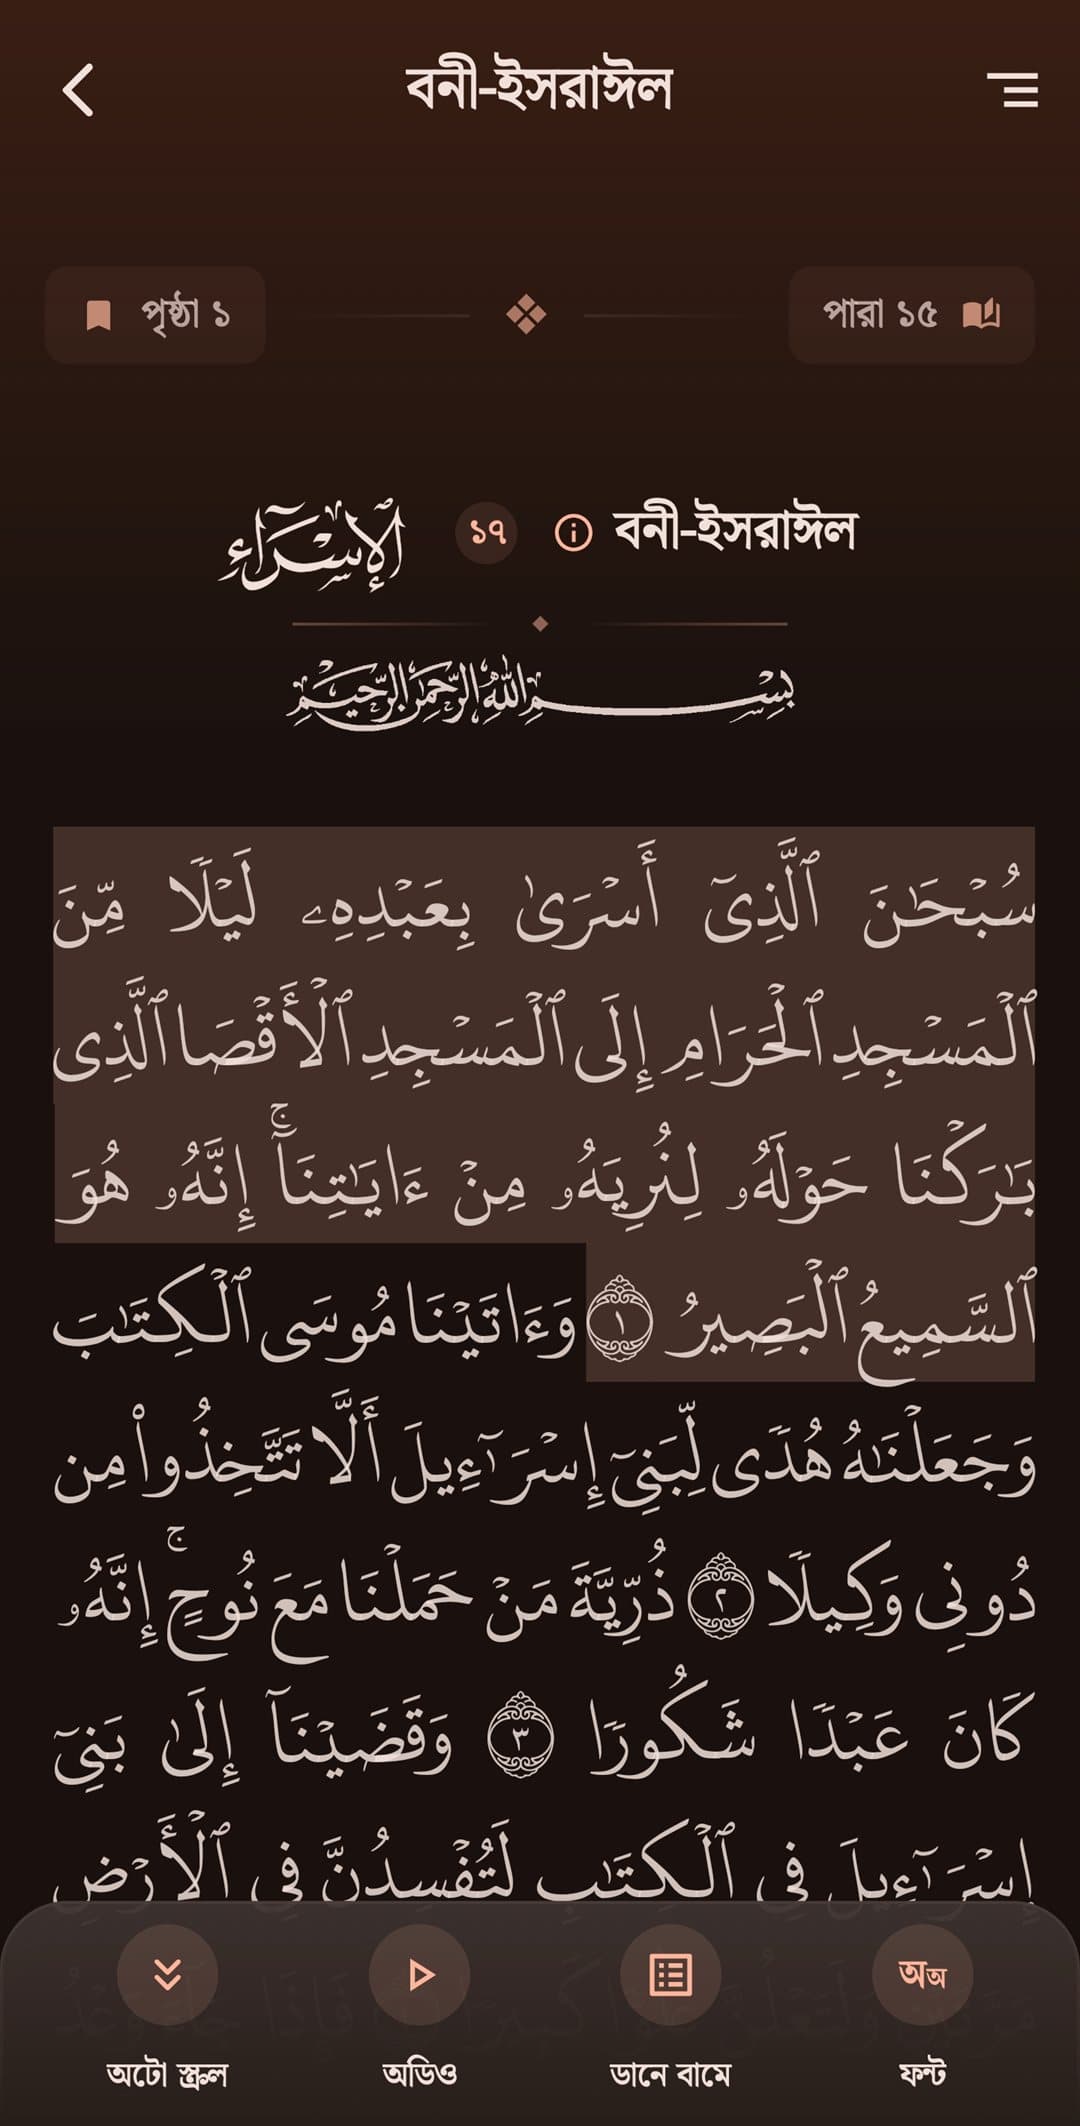 বনী-ইসরাঈল
পৃষ্ঠা ১
পারা ১৫
الإسراء
১৭
বনী-ইসরাঈল
بِسْمِ اللَّهِ الرَّحْمَٰنِ الرَّحِيمِ
سُبْحَٰنَ ٱلَّذِىٓ أَسْرَىٰ بِعَبْدِهِۦ لَيْلًا مِّنَ
ٱلْمَسْجِدِ ٱلْحَرَامِ إِلَى ٱلْمَسْجِدِ ٱلْأَقْصَا ٱلَّذِى
بَٰرَكْنَا حَوْلَهُۥ لِنُرِيَهُۥ مِنْ ءَايَٰتِنَآ ۚ إِنَّهُۥ هُوَ
ٱلسَّمِيعُ ٱلْبَصِيرُ ١ وَءَاتَيْنَا مُوسَى ٱلْكِتَٰبَ
وَجَعَلْنَٰهُ هُدًى لِّبَنِىٓ إِسْرَٰٓءِيلَ أَلَّا تَتَّخِذُوا۟ مِن
دُونِى وَكِيلًا ٢ ذُرِّيَّةَ مَنْ حَمَلْنَا مَعَ نُوحٍ ۚ إِنَّهُۥ
كَانَ عَبْدًا شَكُورًا ٣ وَقَضَيْنَآ إِلَىٰ بَنِىٓ
إِسْرَٰٓءِيلَ فِى ٱلْكِتَٰبِ لَتُفْسِدُنَّ فِى ٱلْأَرْضِ
অটো স্ক্রল
অডিও
ডানে বামে
অঅ
ফন্ট